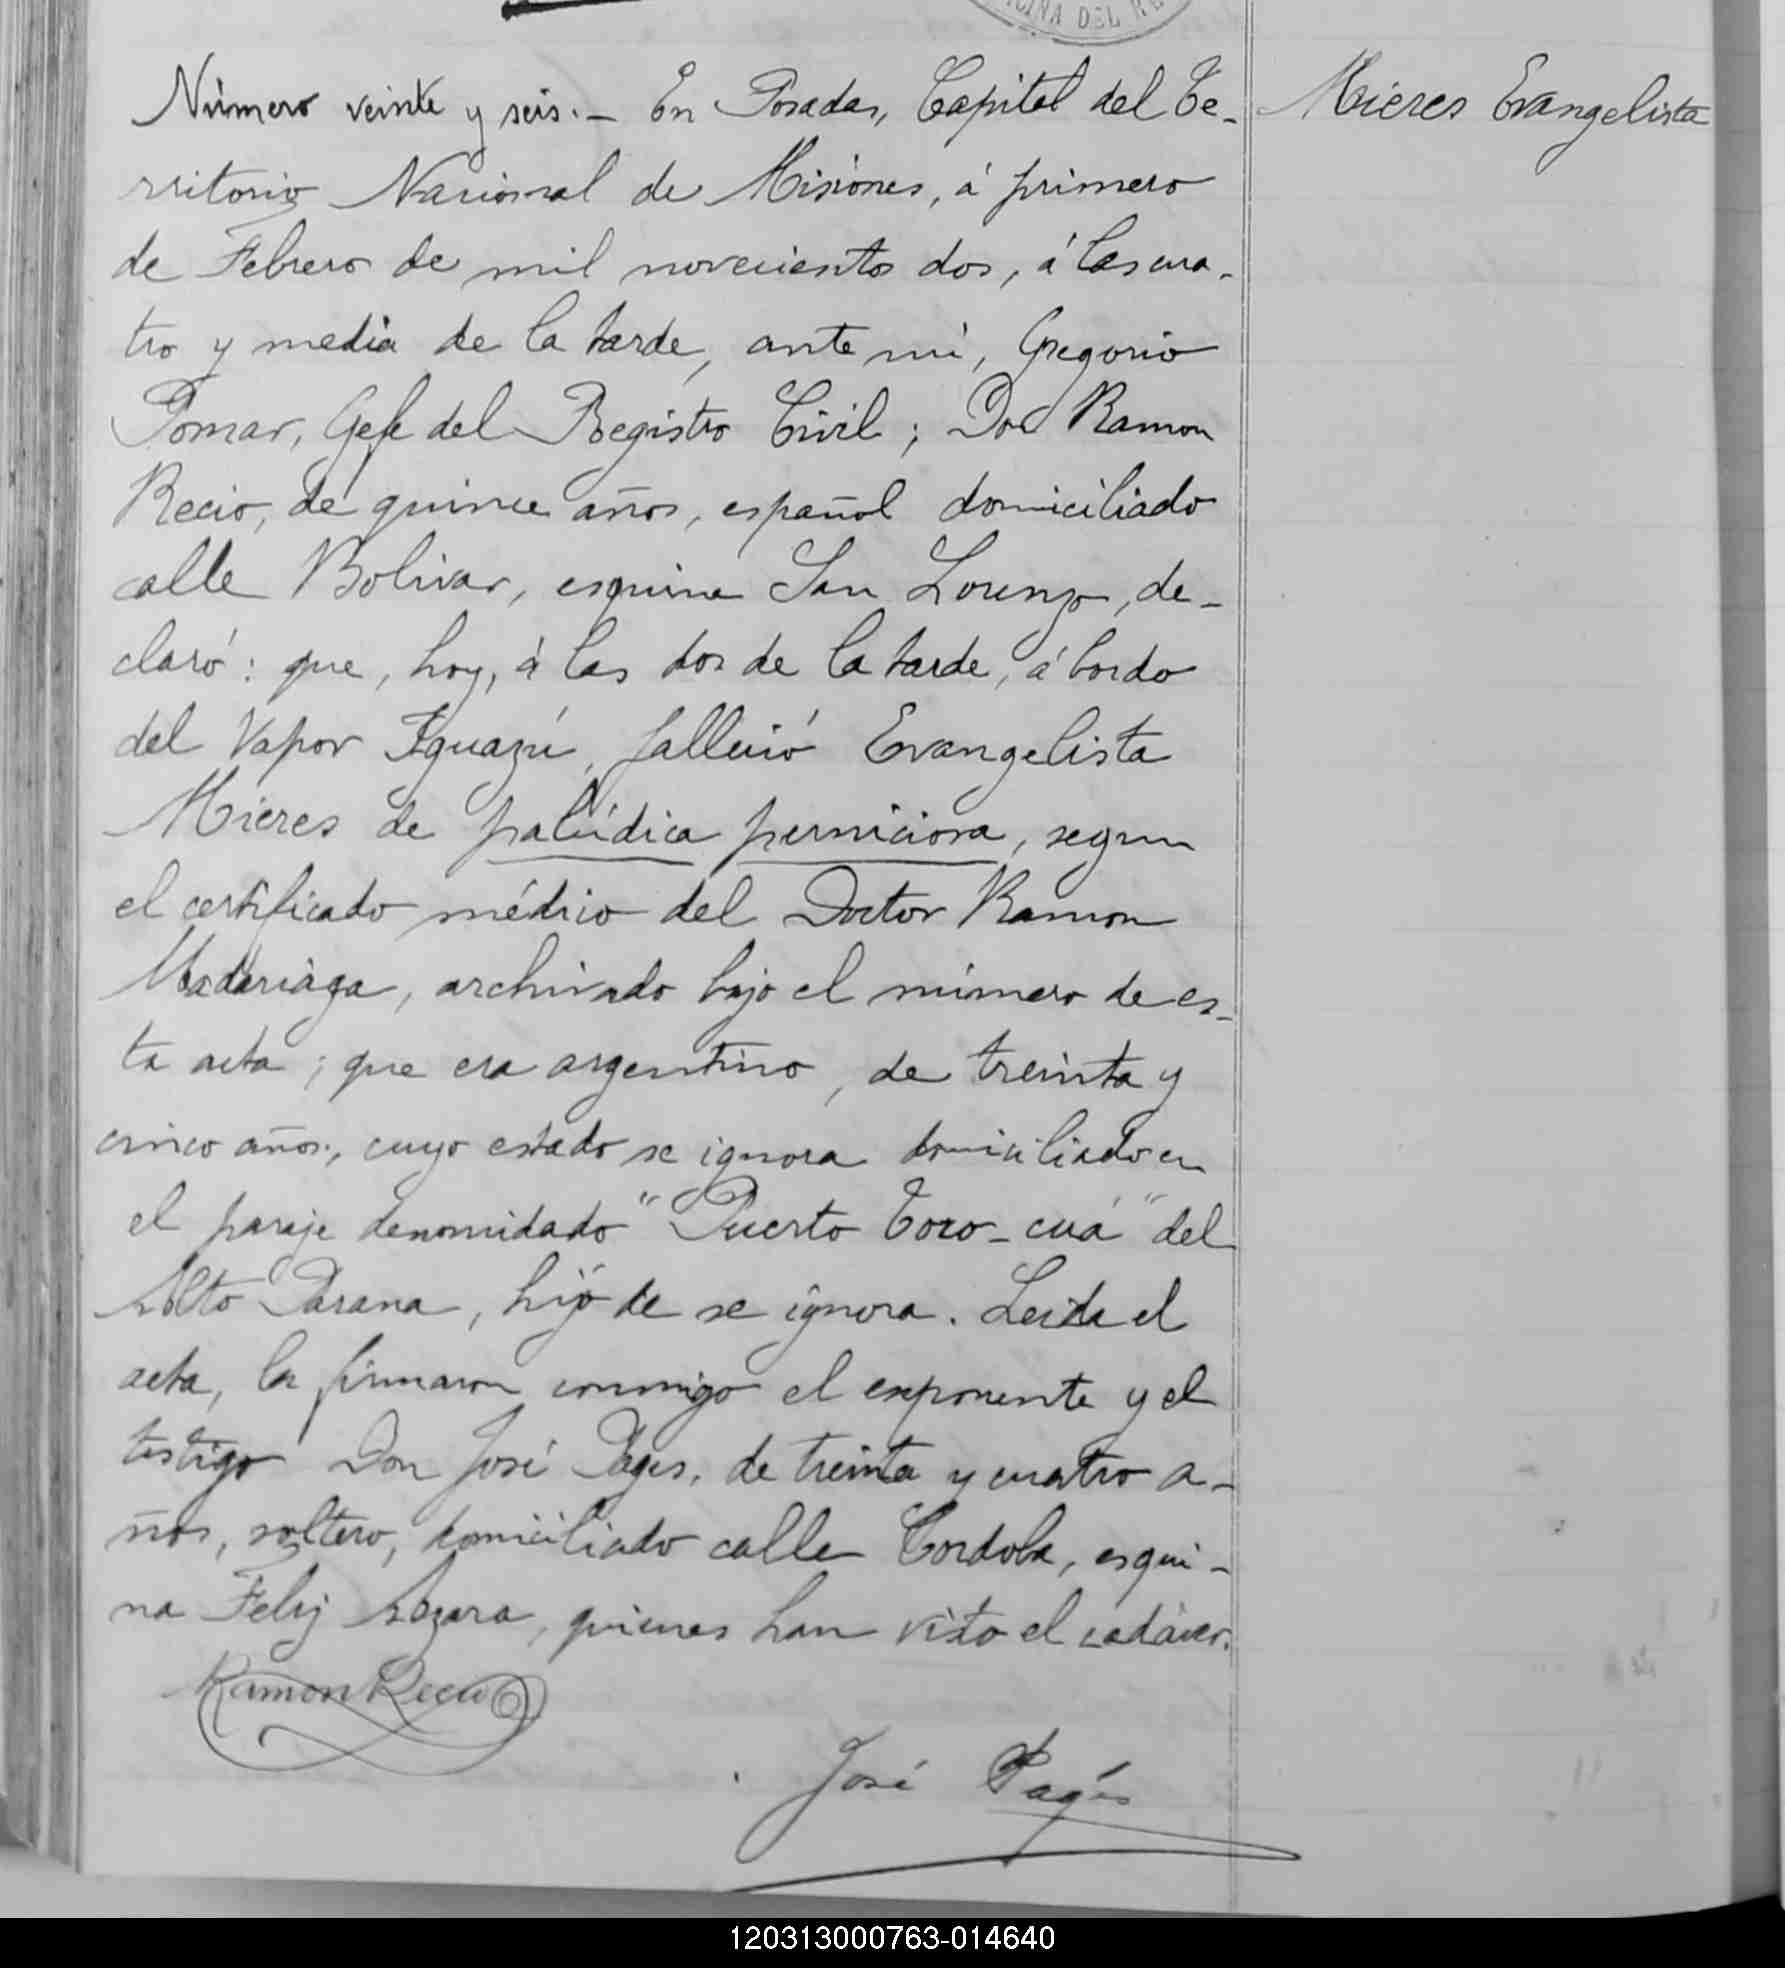 CINA DEL RE
Número veinte y seis.- En Posadas, Capital del Te-
Mieres Evangelista
rritorio Nacional de Misiones, á primero
de Febrero de mil novecientos dos, á las cua-
tro y media de la tarde, ante mi, Gregorio
Pomar, Gefe del Registro Civil; Don Ramon
Recio, de quince años, español domiciliado
calle Bolivar, esquina San Lorenzo, de-
claró: que, hoy, á las dos de la tarde, á bordo
del Vapor Iguazú, falleció Evangelista
Mieres de palúdica perniciosa, segun
el certificado médico del Doctor Ramon
Madariaga, archivado bajo el número de es-
ta acta; que era argentino, de treinta y
cinco años, cuyo estado se ignora domiciliado en
el paraje denomidado "Puerto Toro-cuá" del
Alto Parana, hijo de se ignora. Leida el
acta, la firmaron conmigo el exponente y el
testigo Don José Pages, de treinta y cuatro a-
ños, soltero, domiciliado calle Cordoba, esqui-
na Feliz Azara, quienes han visto el cadáver.
Ramon Recio
José Pagés
120313000763-014640